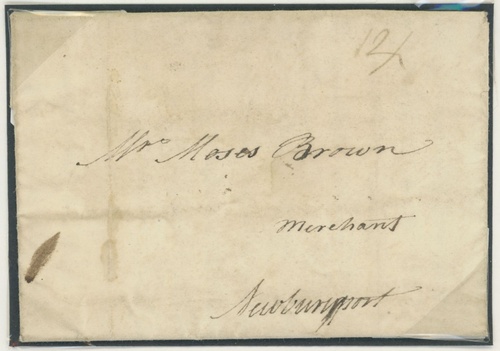 Mr. Moses Brown
Merchant
Newburyport